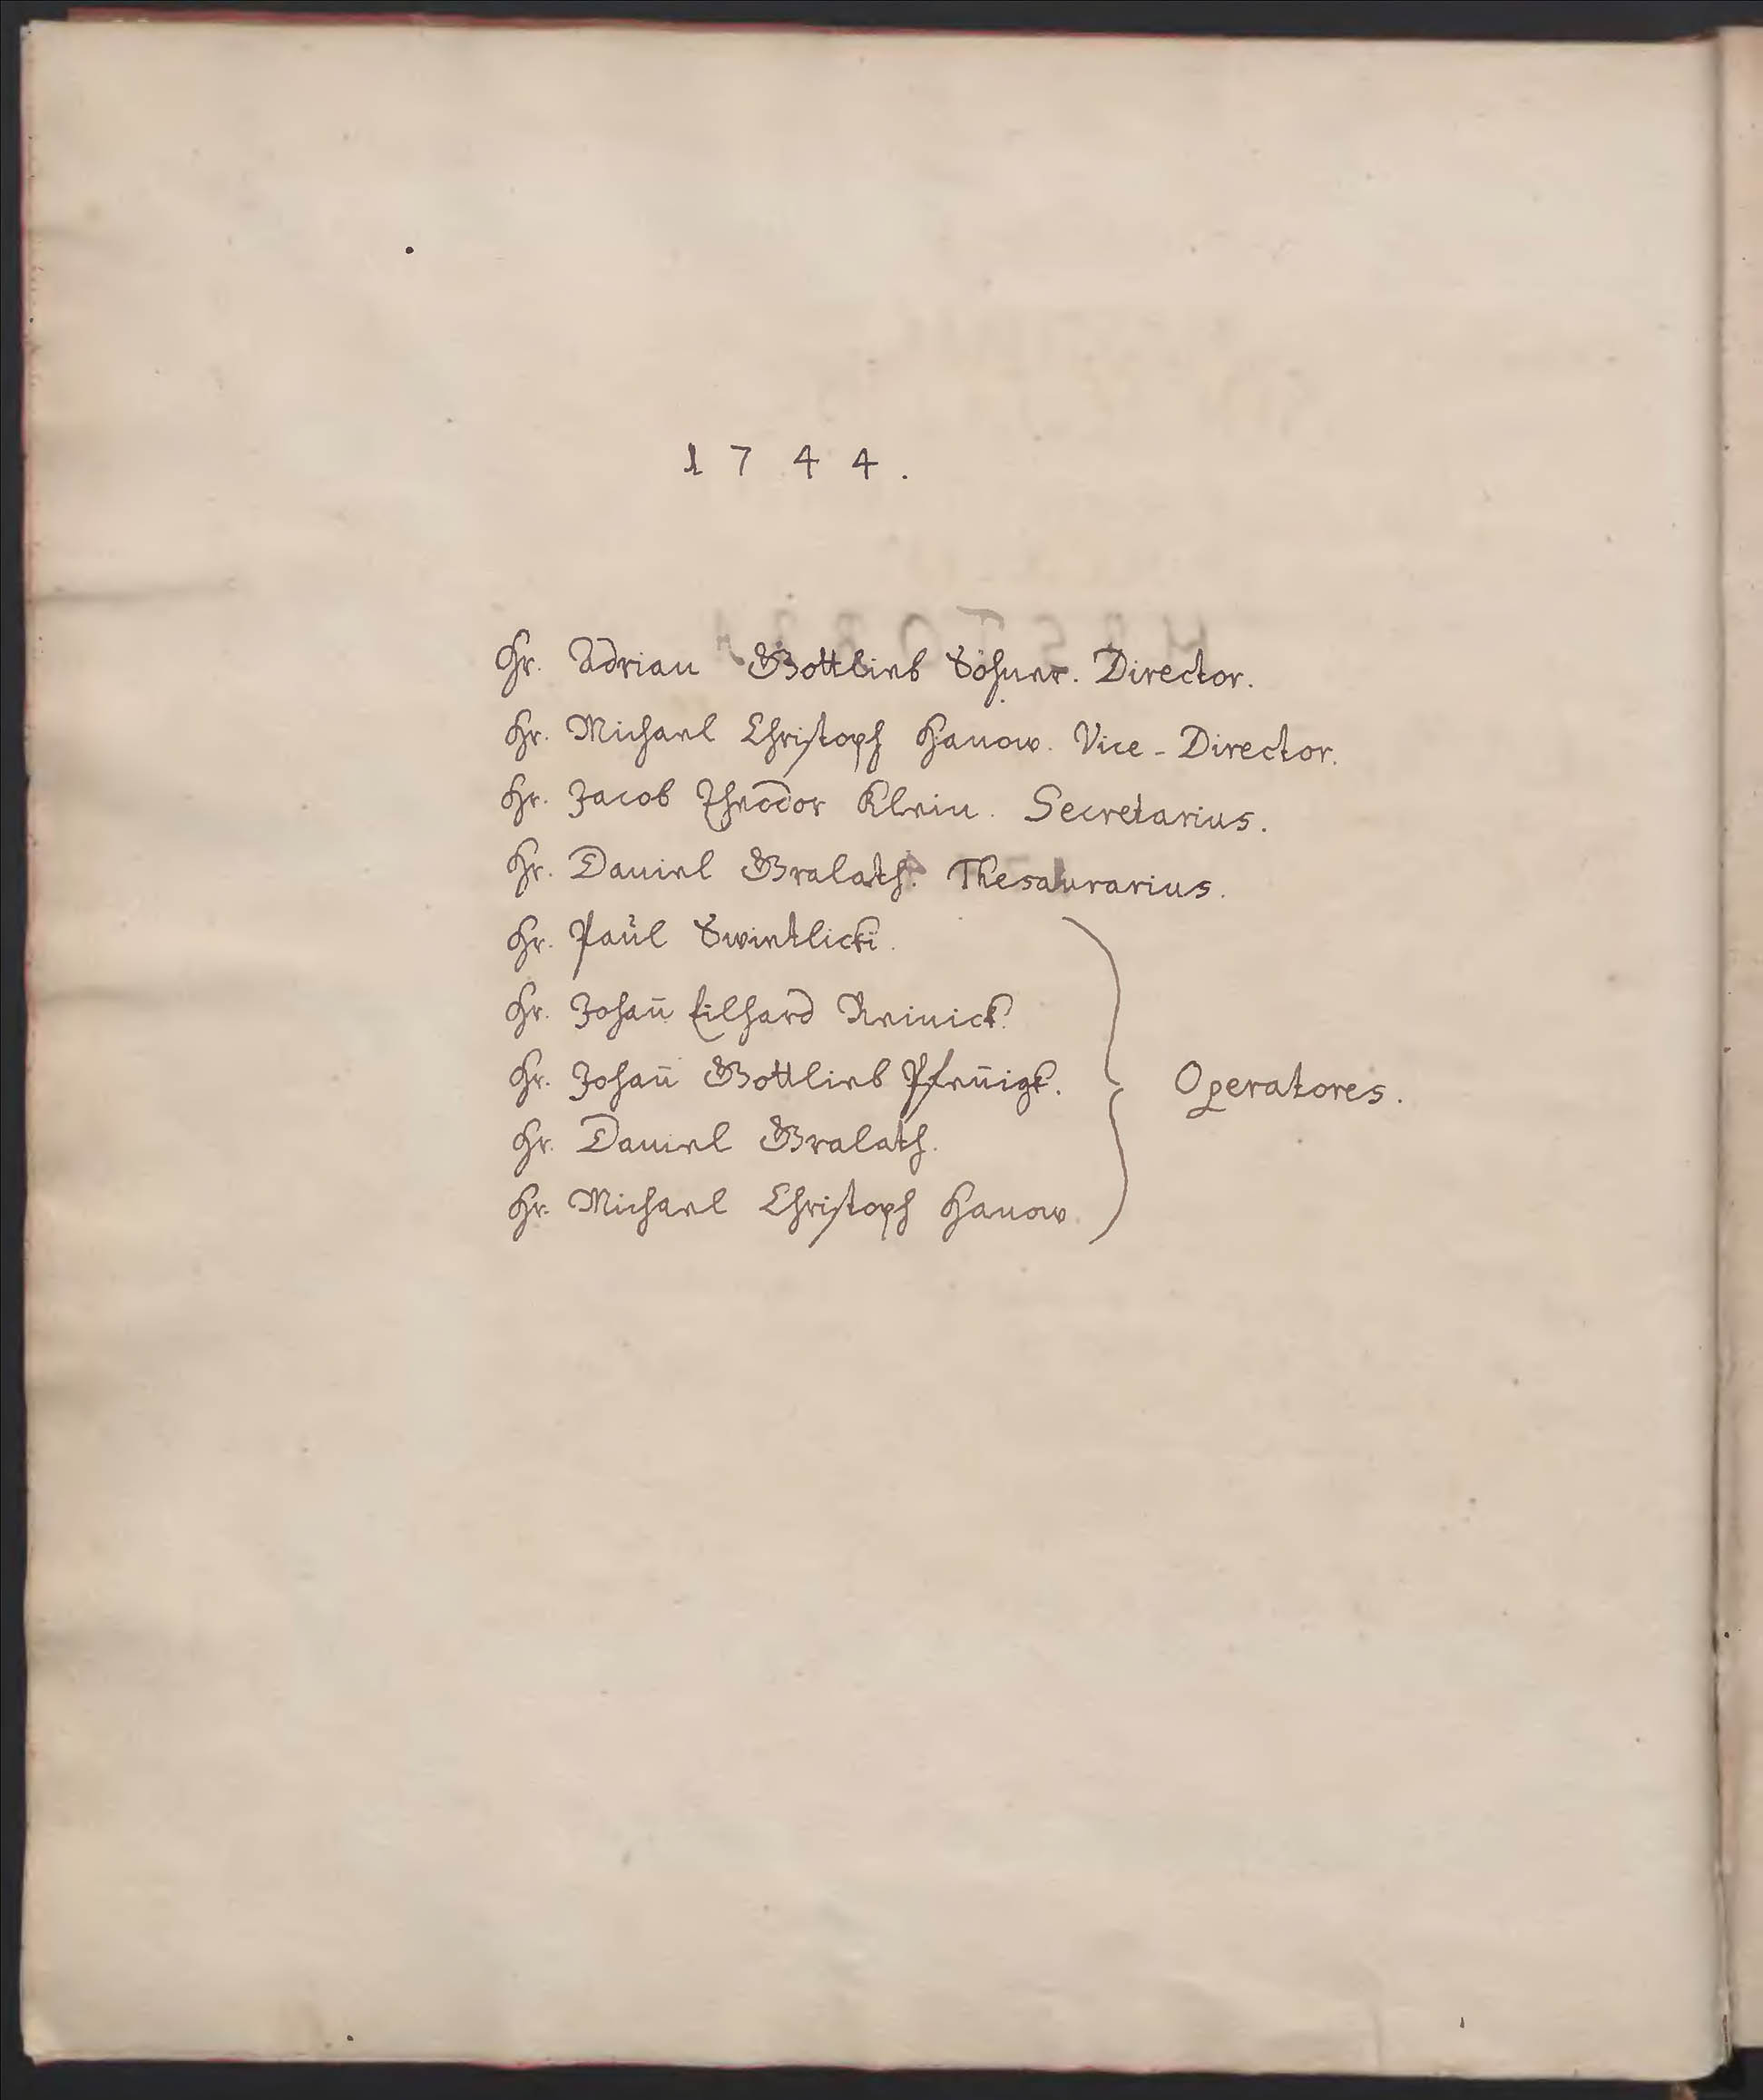 1744.
Hr. Adrian Gottlieb Söhner. Director.
Hr. Michael Christoph Hanow. Vice-Director.
Hr. Jacob Theodor Klein. Secretarius.
Hr. Daniel Gralath. Thesaurarius.
Hr. Paul Swietlicki.
Hr. Johañ Eilhard Reinick.
Hr. Johañ Gottlieb Pfeñigk. Operatores.
Hr. Daniel Gralath.
Hr. Michael Christoph Hanow.